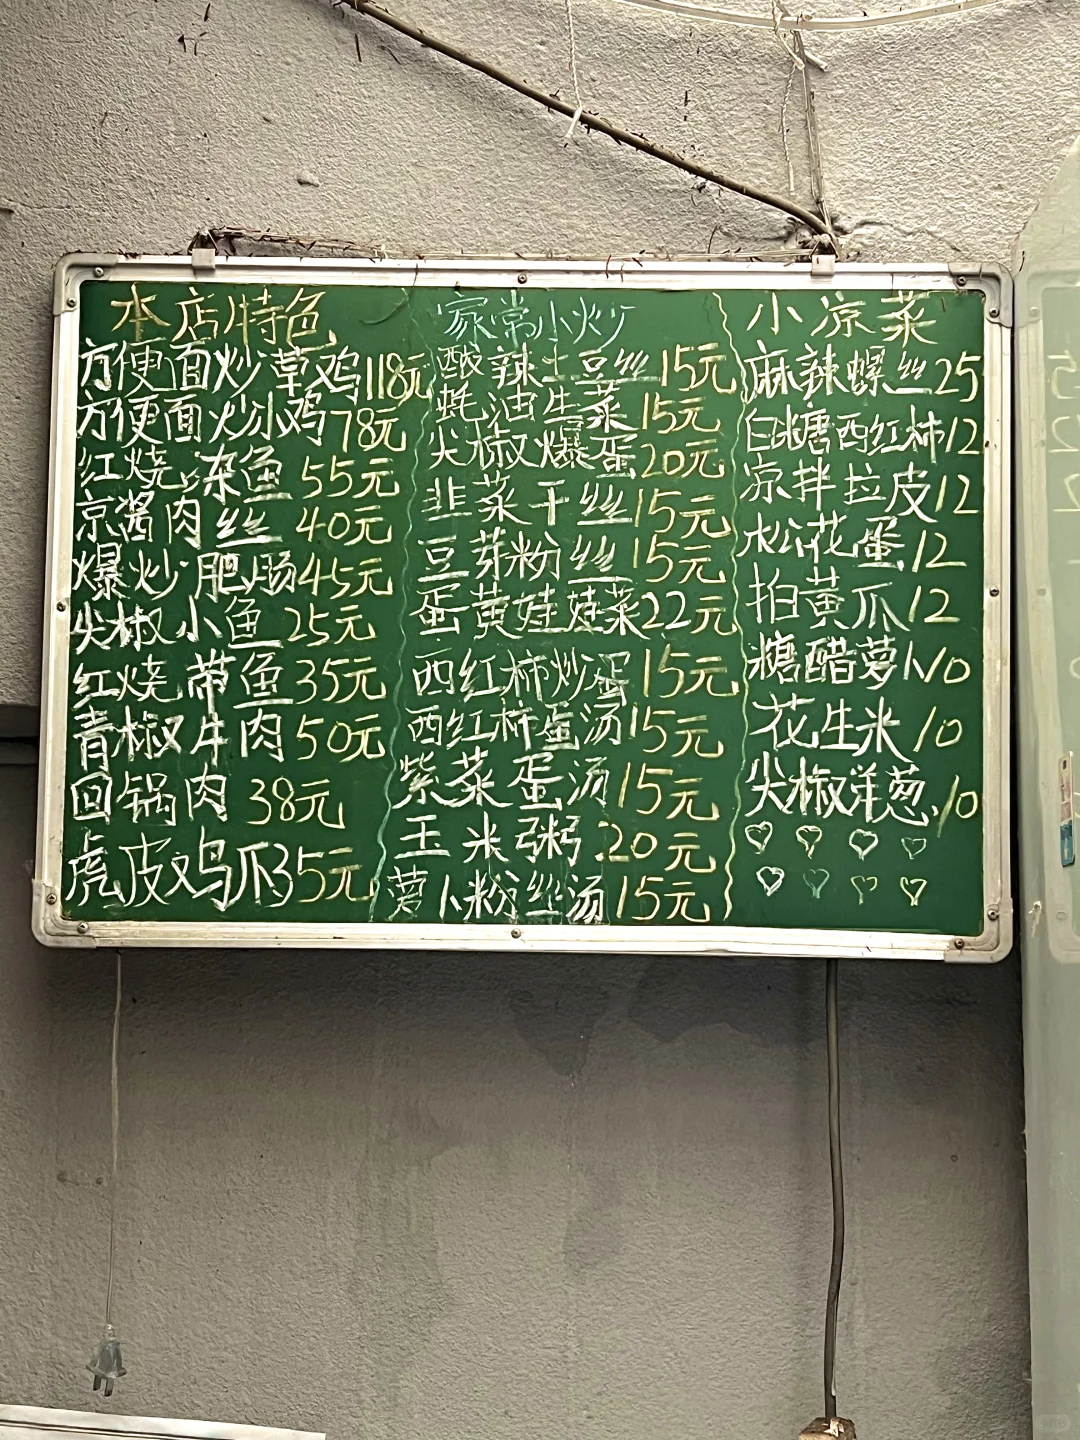 本店特色
方便面炒草鸡118元
方便面炒小鸡78元
红烧杂鱼55元
京酱肉丝40元
爆炒肥肠45元
尖椒小鱼25元
红烧带鱼35元
青椒牛肉50元
回锅肉38元
虎皮鸡爪35元
家常小炒
酸辣土豆丝15元
蚝油生菜15元
尖椒爆蛋20元
韭菜干丝15元
豆芽粉丝15元
蛋黄娃娃菜22元
西红柿炒蛋15元
西红柿蛋汤15元
紫菜蛋汤15元
玉米粥20元
萝卜粉丝汤15元
小凉菜
麻辣螺丝25
白糖西红柿12
凉拌拉皮12
松花蛋12
拍黄瓜12
糖醋萝卜10
花生米10
尖椒洋葱10